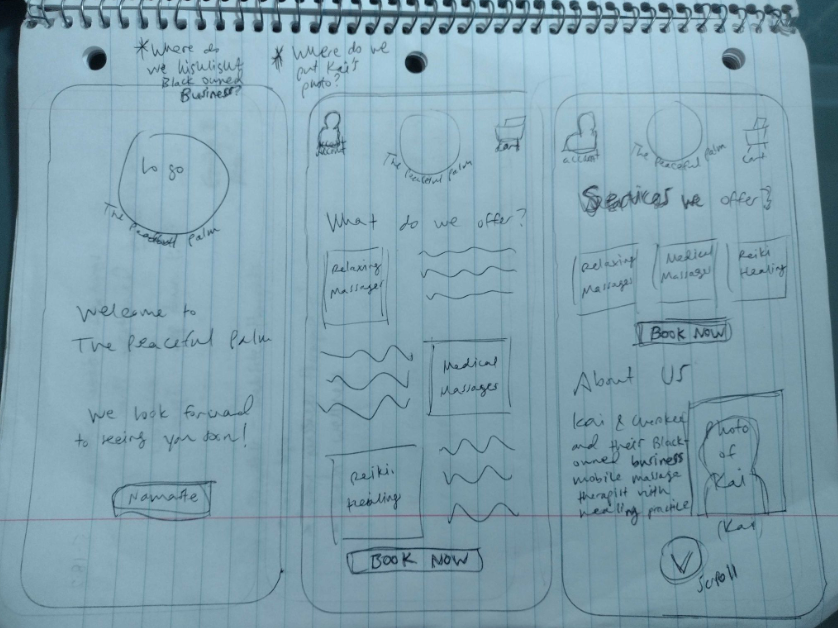 *Where do
we highlight
Black owned
Business?
* Where do we
put Kai's
photo?
Logo
The Peaceful Palm
Welcome to
The Peaceful Palm
We look forward
to seeing you soon!
Namaste
The Peaceful Palm
cart
What do we offer?
Relaxing
Massages
Medical
Massages
Reiki
Healing
BOOK NOW
account
The Peaceful Palm
cart
Services we offer
Relaxing
Massages
Medical
Massages
Reiki
Healing
BOOK NOW
About Us
Kai &
and their Black-
owned business
mobile massage
therapist with
healing practice
Photo
of
Kai
(Kai)
Scroll